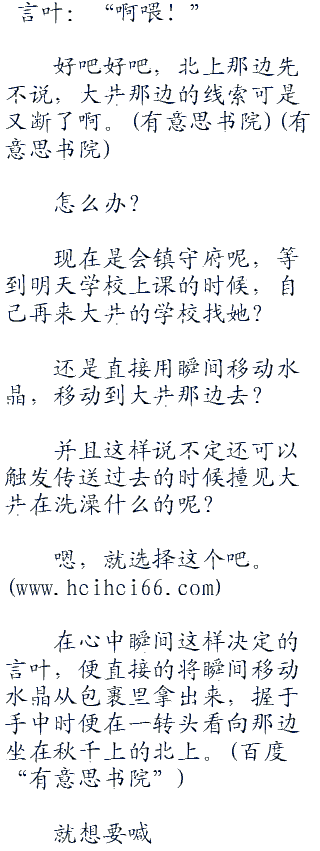 言叶：“啊喂！”
好吧好吧，北上那边先
不说，大井那边的线索可是
又断了啊。(有意思书院)(有
意思书院)
怎么办？
现在是会镇守府呢，等
到明天学校上课的时候，自
己再来大井的学校找她？
还是直接用瞬间移动水
晶，移动到大井那边去？
并且这样说不定还可以
触发传送过去的时候撞见大
井在洗澡什么的呢？
嗯，就选择这个吧。
(www.hcihci66.com)
在心中瞬间这样决定的
言叶，便直接的将瞬间移动
水晶从包裹里拿出来，握于
手中时便在一转头看向那边
坐在秋千上的北上。(百度
“有意思书院”)
就想要喊